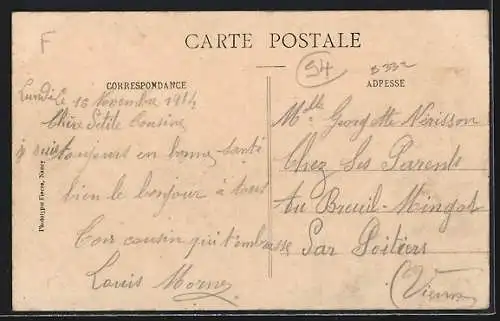 F
CARTE POSTALE
54
3332
CORRESPONDANCE
ADPESSE
Lundi le 16 Novembre 1914
Chère Petite Cousine
je suis toujours en bonne santé
bien le bonjour à tous
Ton cousin qui t'embrasse
Louis
Phototypie Nancy
Mlle Georgette Nérisson
Chez Ses Parents
Au Breuil-Mingot
Par Poitiers
(Vienne